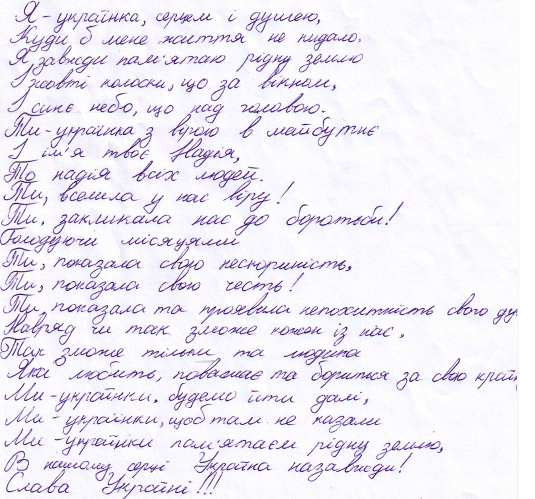 Я - українка, серцем і душею,
Куди б мене життя не кидало.
Я завжди пам'ятаю рідну землю
І жовті колоски, що за вікном,
І синє небо, що над головою.
Ти - українка з вірою в майбутнє
І ім'я твоє Надія,
То надія всіх людей.
Ти, вселила у нас віру!
Ти, закликала нас до боротьби!
Голодуючи місяцями
Ти, показала свою нескориність,
Ти, показала свою честь!
Ти, показала та проявила непохитність свого ду
Навряд чи так зможе кожен із нас.
Так зможе тільки та людина
Яка любить, поважає та бориться за свою країн
Ми - українки, будемо йти далі,
Ми - українки, щоб там не казали
Ми - українки пам'ятаєм рідну землю,
В нашому серці Україна назавжди!
Слава Україні!!!